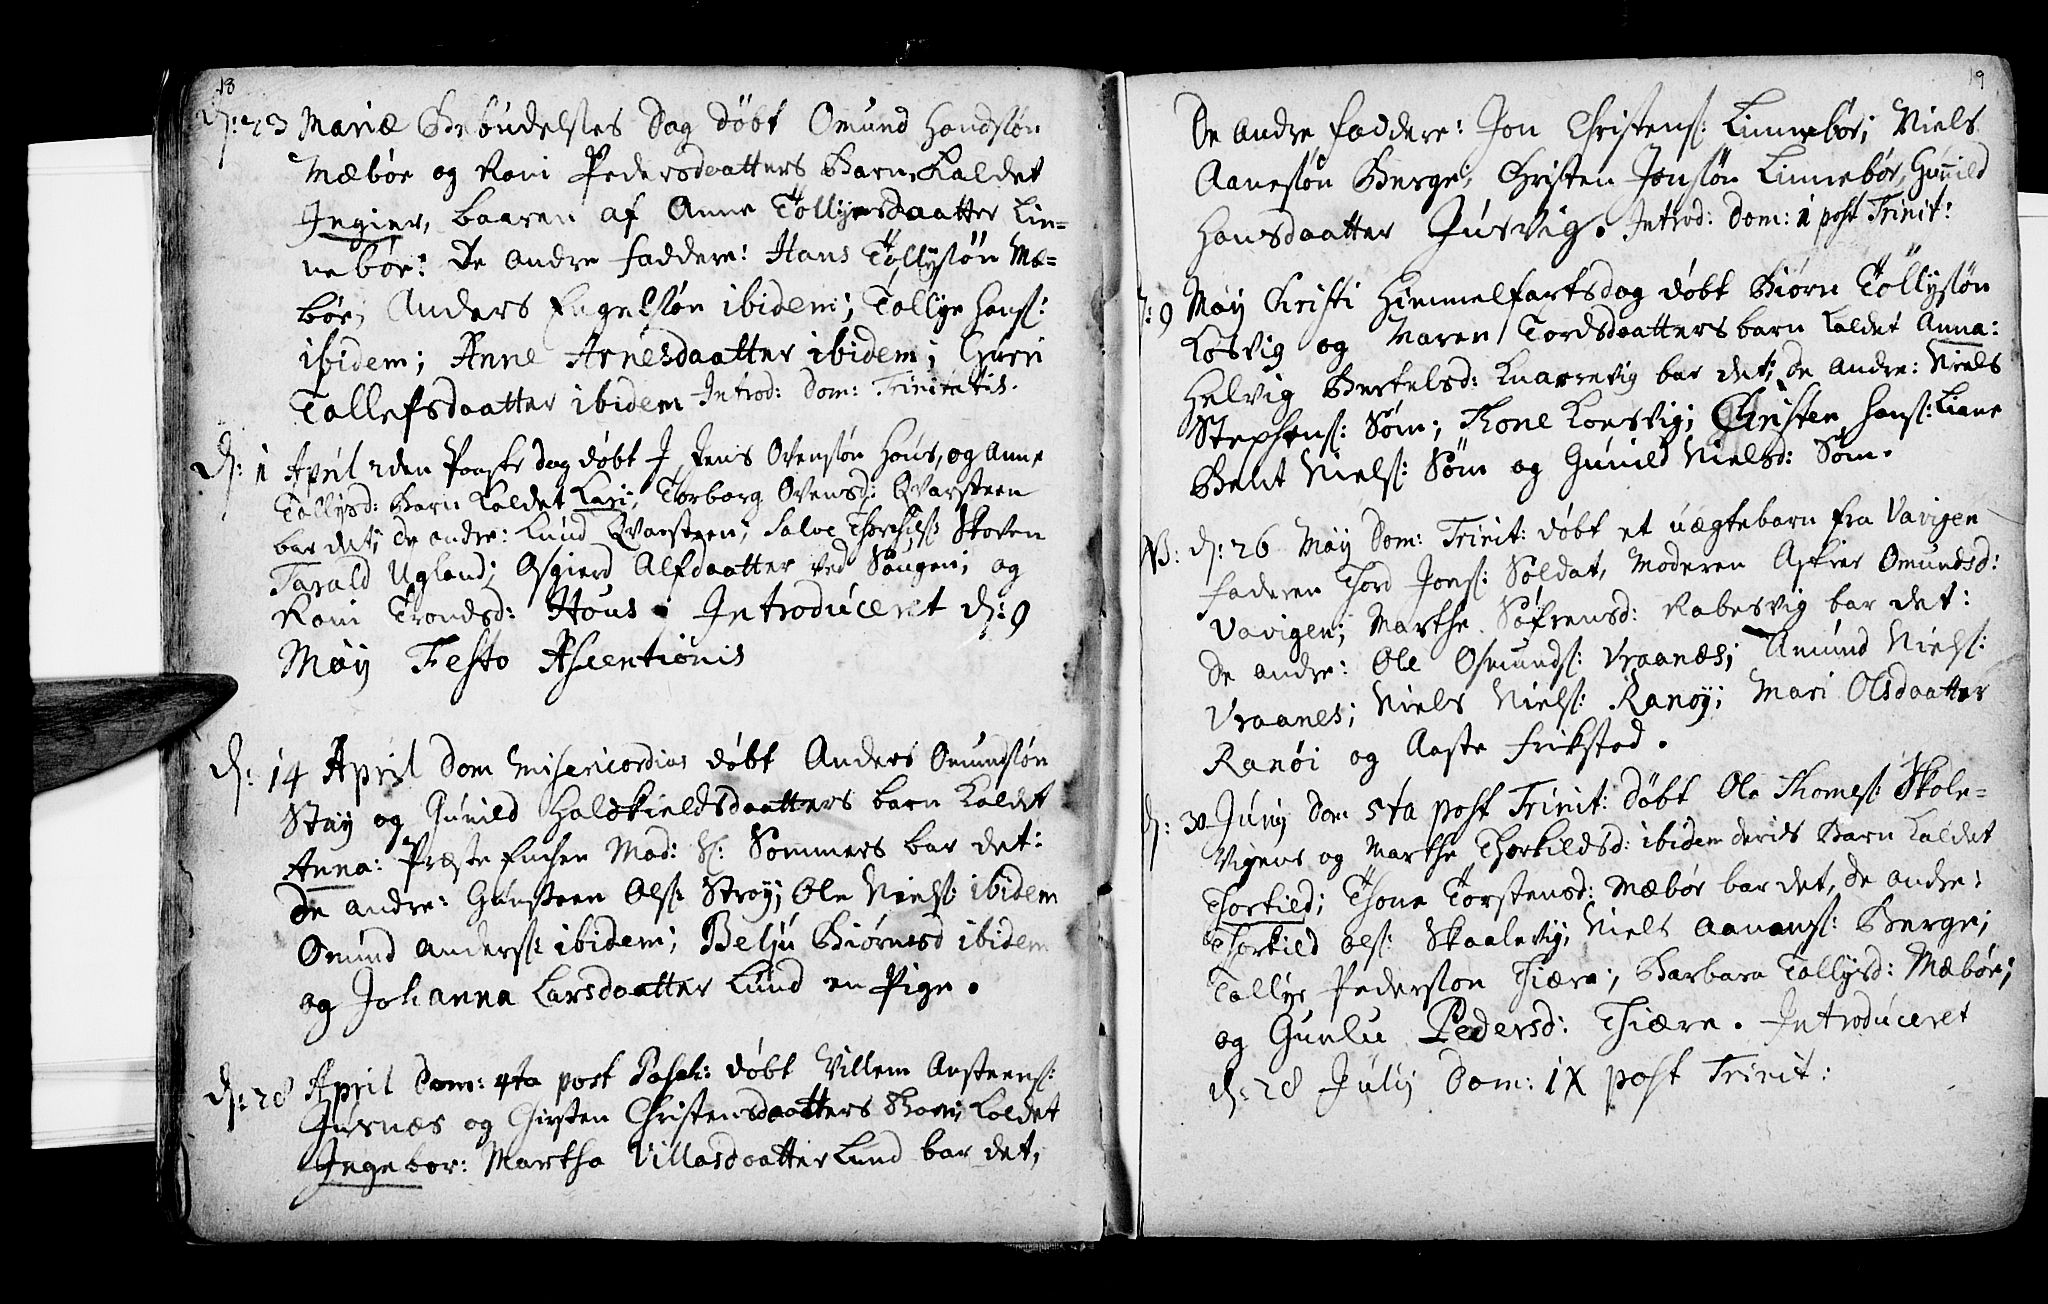 18
d: 23 Mariæ Bebudelses Dag döbt Omund Handsøn
Mæbøe og Roni Pedersdaatters Barn kaldet
Ingier, baaren af Anne Tollysdaatter Lin-
nebøe: De andre faddere: Hans Töllysøn Mæ-
bøe, Anders Engelsøn ibidem; Tollye Hans:
ibidem; Anne Arnesdaatter ibidem; Guri
Tallefsdaatter ibidem Introd: Dom: Trinitatis.
d: 1 April 2den Paaske dag døbt Jens Ovensøn Hous, og Anne
Tollysd: Barn kaldet Kari; Torborg Ovensd: Qvarsteen
bar det; de andre: Knud Qvarsteen; Salve Thorkels: Skoven
Tarald Ugland; Asgierd Alfdaatter ved Sangen; og
Roni Trondsd: Hous; Introduceret d: 9
Maÿ Festo Ascentionis
d: 14 April Dom Misericordias døbt Anders Omundsøn
Strøÿ og Gunild Halskieldsdaatters barn kaldet
Anna: Præste Enchen Mad: Sl: Sommers bar det:
De andre: Gunsteen Ols: Strøÿ; Ole Niels: ibidem
Omund Anders: ibidem; Belju Biörnesd ibidem
og Johanna Larsdaatter Lund en Pige.
d: 28 April Dom: 4ta post Pasch: døbt Villem Aasteens:
Jusnæs og Chirsten Christensdaatters Barn, kaldet
Ingebor: Martha Villasdaatter Lund bar det,
19
De andre faddere: Jon Christens: Linnebøe; Niels
Aanesøn Berge; Christen Jonsøn Linnebøe, Gunild
Hansdaatter Justvig. Introd: Dom: 1 post Trinit:
d: 9 Maÿ Christi Himmelfartsdag döbt Biørn Töllysøn
Kosvig og Maren Tordsdaatters barn kaldet Anna:
Helvig Bertelsd: Knarrevig bar det; De andre: Niels
Stephens: Søm; Thone Korsvig; Christen Hans: Liane
Bent Niels: Søm og Gunild Nielsd: Søm.
NB: d: 26 Maÿ Dom: Trinit: döbt et uægtebarn fra Vavigen
faderen Thord Jons: Soldat, Moderen Askier Omundsd:
Vavigen; Marthe Søfrensd: Rabesvig bar det:
De andre: Ole Osmunds: Vraanæs; Amund Niels:
Vraanes; Niels Niels: Ranøÿ; Mari Olsdaatter
Ranøi og Aaste Frikstad.
d: 30 Junij Dom 5ta post Trinit: döbt Ole Thomes: Skole-
Vigens og Marthe Thorkildsd: ibidem deris Barn kaldet
Thorkild; Thone Torstensd: Mæbøe bar det, De andre:
Thorkild Ols: Skaalevig; Niels Aanens: Berge;
Tollys Pedersøn Thiære; Barbara Tollysd: Mæbøe;
og Gunlu Pedersd: Thiære. Introduceret
d: 28 Julij Dom: IX post Trinit: